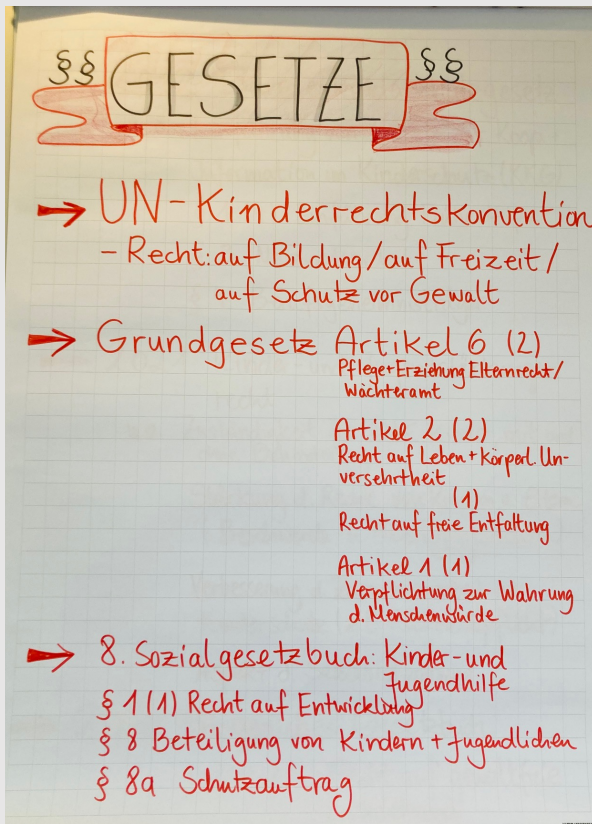 §§ GESETZE §§
→ UN-Kinderrechtskonvention
- Recht: auf Bildung/auf Freizeit/
auf Schutz vor Gewalt
→ Grundgesetz Artikel 6 (2)
Pflege+Erziehung Elternrecht/
Wächteramt
Artikel 2 (2)
Recht auf Leben+Körperl. Un-
versehrtheit
(1)
Recht auf freie Entfaltung
Artikel 1 (1)
Verpflichtung zur Wahrung
d. Menschenwürde
→ 8. Sozialgesetzbuch: Kinder-und
Jugendhilfe
§ 1 (1) Recht auf Entwicklung
§ 8 Beteiligung von Kindern + Jugendlichen
§ 8a Schutzauftrag